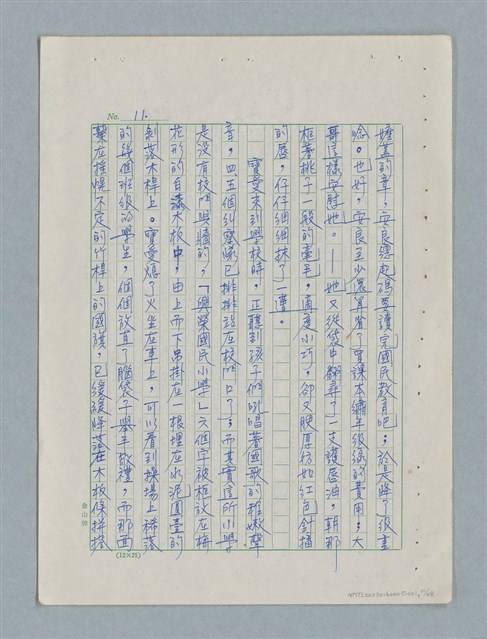 No. 11.
嬤蓋的章，安良總起碼要讀完國民教育吧；於是降了級重
唸。也好，安良至少還算省了買課本繡年級線的費用；大
哥這樣安慰她。——她又從袋中翻尋了一支護唇油，朝那
框著桃子一般的毫毛，適度小巧，卻又腴厚彷如紅色針插
的唇，仔仔細細抹了一遭。
寶愛來到學校時，正聽到孩子們吼唱著國歌的稚嫩聲
音，四五個糾察隊已排排站在校門口了；而其實這所小學
是沒有校門與牆的，「興榮國民小學」六個字被框放在梅
花形的白漆木板中，由上而下吊掛在一根埋在水泥圓臺的
剝落木桿上。寶愛熄了火坐在車上，可以看到操場上稀落
的幾個班級的學生，個個放直了腦袋子舉手敬禮，而那面
繫在搖幌不定的竹桿上的國旗，已緩緩降落在木板條拼搭
金山牌
(12×25)